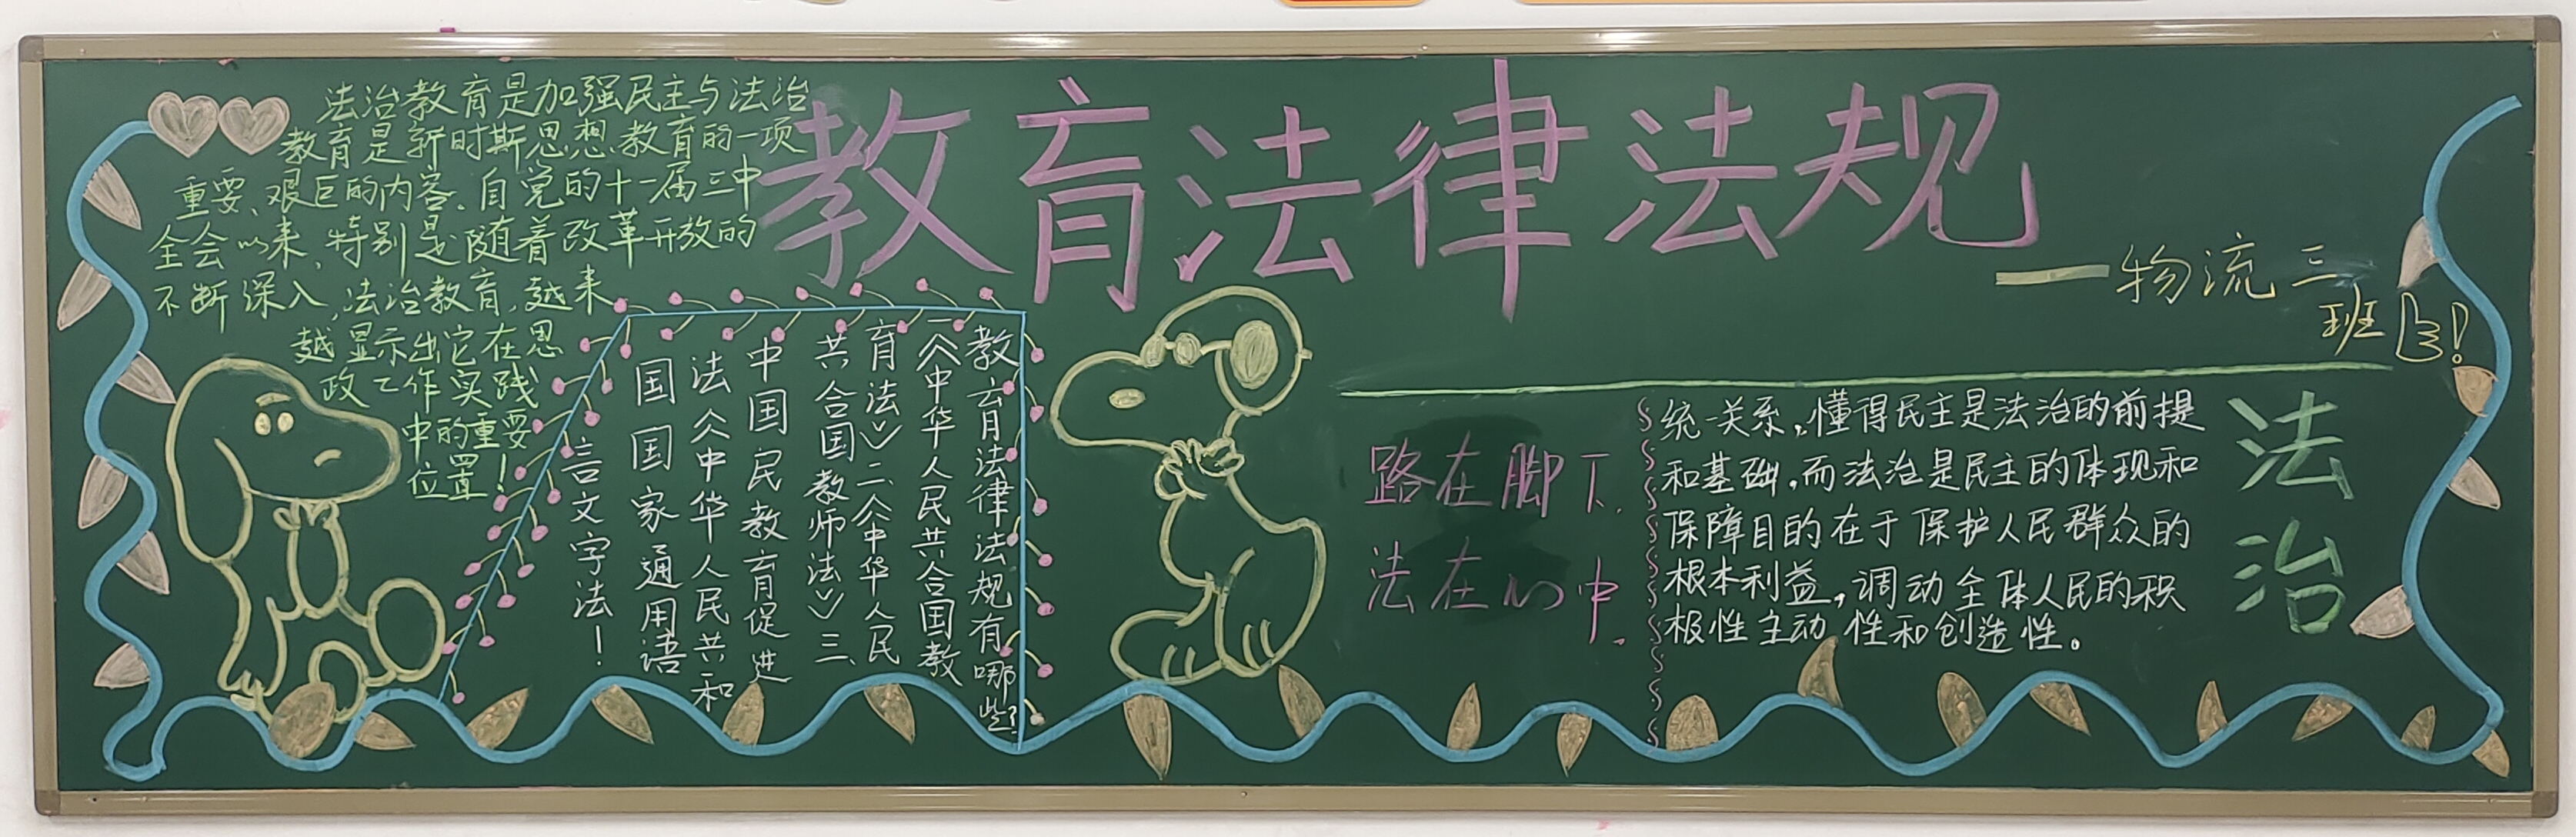 教育法律法规
一物流三
班!
法治教育是加强民主与法治
教育是新时斯思想、教育的一项
重要、艰巨的内容。自党的十一届三中
全会以来,特别是随着改革开放的
不断深入,法治教育,越来
越显示出它在思
政工作实践
中的重要
位置!
教育法律法规有哪些?
一《中华人民共合国教
育法》二《中华人民
共合国教师法》三、
中国民教育促进
法《中华人民共和
国国家通用语
言文字法!
路在脚下.
法在心中.
统一关系,懂得民主是法治的前提
和基础,而法治是民主的体现和
保障目的在于保护人民群众的
根本利益,调动全体人民的积
极性主动性和创造性。
法
治